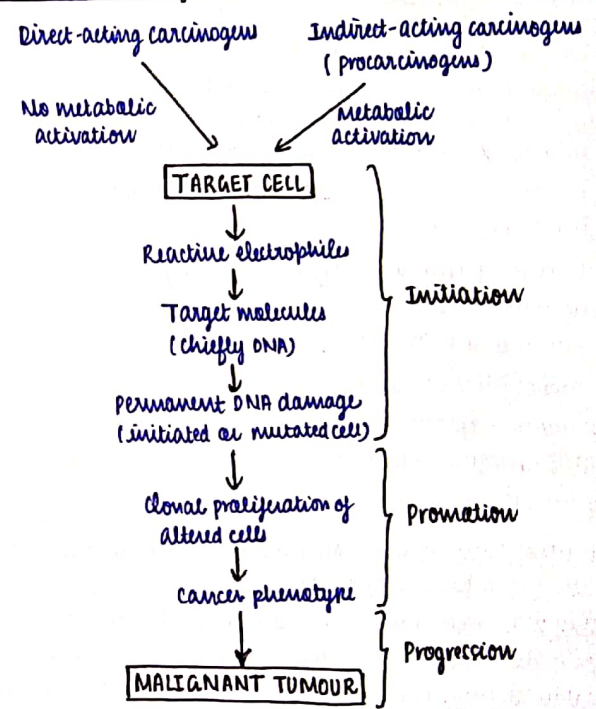 Direct-acting carcinogens
Indirect-acting carcinogens
(procarcinogens)
No metabolic
activation
Metabolic
activation
TARGET CELL
Reactive electrophiles
Target molecules
(chiefly DNA)
Permanent DNA damage
(initiated or mutated cell)
Initiation
Clonal proliferation of
altered cells
Cancer phenotype
Promotion
Progression
MALIGNANT TUMOUR